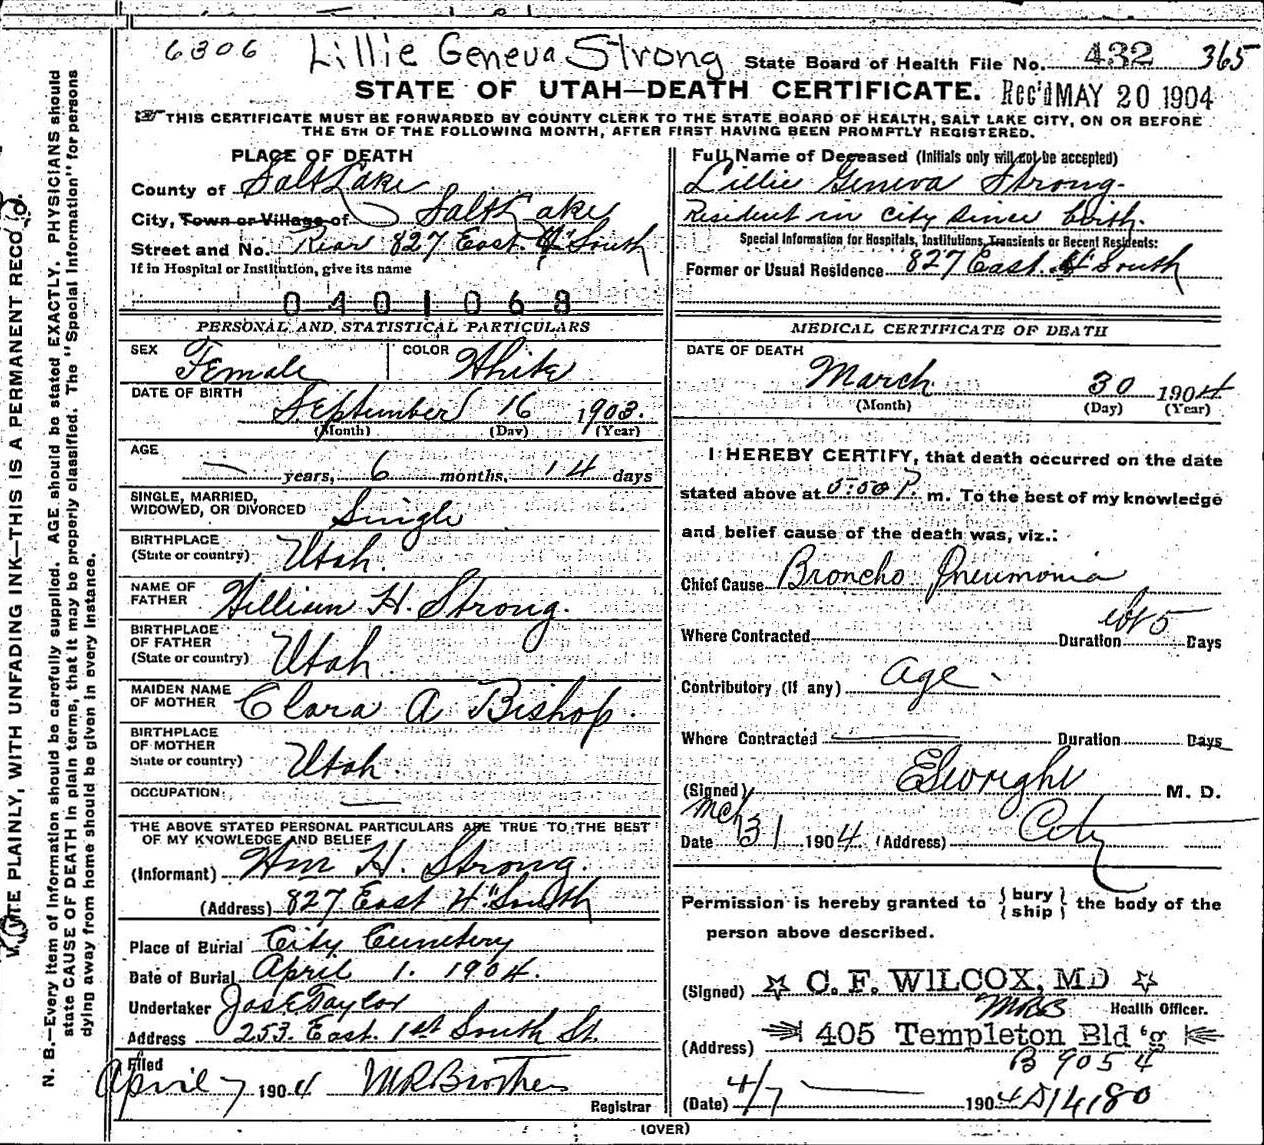 6306 Lillie Geneva Strong State Board of Health File No. 432 365
STATE OF UTAH—DEATH CERTIFICATE. Rec'd MAY 20 1904
THIS CERTIFICATE MUST BE FORWARDED BY COUNTY CLERK TO THE STATE BOARD OF HEALTH, SALT LAKE CITY, ON OR BEFORE
THE 5TH OF THE FOLLOWING MONTH, AFTER FIRST HAVING BEEN PROMPTLY REGISTERED.
PLACE OF DEATH
County of Salt Lake
City, Town or Village of Salt Lake
Street and No. Rear 827 East 4" South
If in Hospital or Institution, give its name
0401068
Full Name of Deceased (Initials only will not be accepted)
Lillie Geneva Strong.
Resident in city since birth.
Special Information for Hospitals, Institutions, Transients or Recent Residents:
Former or Usual Residence 827 East 4" South
PERSONAL AND STATISTICAL PARTICULARS
SEX Female COLOR White
DATE OF BIRTH
September 16 1903.
(Month) (Day) (Year)
AGE
— years, 6 months, 14 days
SINGLE, MARRIED,
WIDOWED, OR DIVORCED Single
BIRTHPLACE
(State or country) Utah.
NAME OF
FATHER William H. Strong.
BIRTHPLACE
OF FATHER
(State or country) Utah
MAIDEN NAME
OF MOTHER Clara A Bishop.
BIRTHPLACE
OF MOTHER
State or country) Utah.
OCCUPATION: —
THE ABOVE STATED PERSONAL PARTICULARS ARE TRUE TO THE BEST
OF MY KNOWLEDGE AND BELIEF
(Informant) Wm H. Strong.
(Address) 827 East 4" South
Place of Burial City Cemetery
Date of Burial April 1. 1904.
Undertaker Jos E Taylor
Address 253. East. 1st South St.
Filed
April 7 1904 M R Brothers
Registrar
MEDICAL CERTIFICATE OF DEATH
DATE OF DEATH
March 30 1904
(Month) (Day) (Year)
I HEREBY CERTIFY, that death occurred on the date
stated above at 5:00 P. m. To the best of my knowledge
and belief cause of the death was, viz.:
Chief Cause Broncho Pneumonia
Where Contracted Duration abt 5 Days
Contributory (if any) age.
Where Contracted — Duration Days
(Signed) E S Wright M. D.
Date Mch 31 1904 (Address) City
Permission is hereby granted to {bury
ship} the body of the
person above described.
(Signed) C. F. WILCOX, MD
MRB Health Officer.
(Address) 405 Templeton Bld'g
B 9054
(Date) 4/7 — 1904 D14180
(OVER)
WRITE PLAINLY, WITH UNFADING INK—THIS IS A PERMANENT RECORD.
N. B.—Every item of information should be carefully supplied. AGE should be stated EXACTLY. PHYSICIANS should
state CAUSE OF DEATH in plain terms, that it may be properly classified. The "Special Information" for persons
dying away from home should be given in every instance.